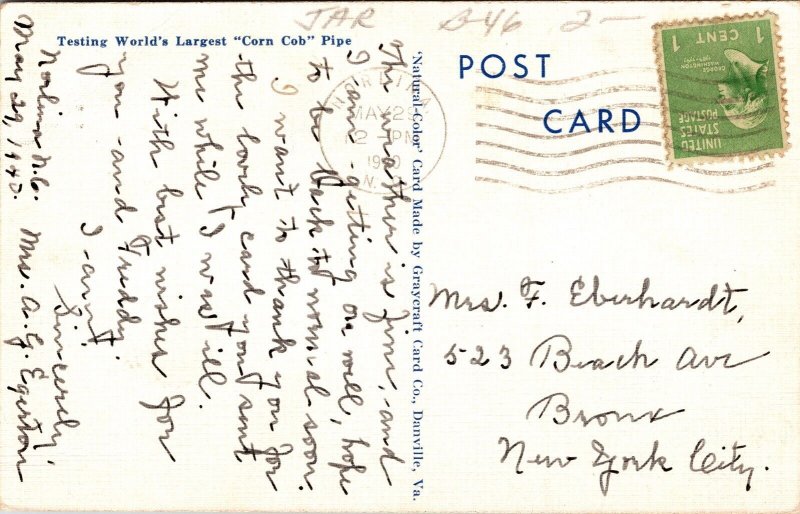 JAR B-46 2-
Testing World's Largest "Corn Cob" Pipe
'Natural-Color' Card Made by Graycraft Card Co., Danville, Va.
POST
CARD
UNITED
STATES
POSTAGE
GEORGE
WASHINGTON
1789-1797
1 CENT 1
NORLINA
MAY 29
2 PM
1940
N.C.
Norlina N.C.
May 29, 1940.
The weather is fine, and
I am getting on well, hope
to be back to normal soon.
I want to thank you for
the lovely card you sent
me while I was ill.
With best wishes for
you and Freddy.
I am
Sincerely,
Mrs. A. G. Egerton
Mrs. F. Eberhardt,
523 Beach Ave
Bronx
New York City.